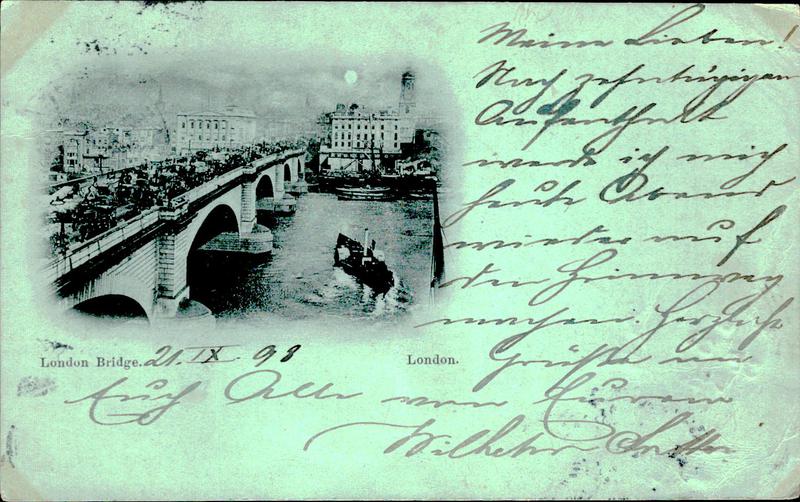 Meine Lieben!
Nach zehntägigem
Aufenthalt
werde ich mich
heute Abend
wieder auf
den Heimweg
machen. Herzliche
Grüße an
London Bridge. 21. IX 98
London.
Euch Alle von Eurem
Wilhelm